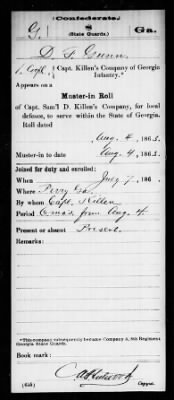 Confederate.
G 8 Ga.
(State Guards.)
D. F. Gunn
1 Corpl., Capt. Killen's Company of Georgia
Infantry.*
Appears on a
Muster-in Roll
of Capt. Sam'l D. Killen's Company, for local
defense, to serve within the State of Georgia.
Roll dated
Aug. 4, 1863.
Muster-in to date Aug. 4, 1863.
Joined for duty and enrolled:
When July 7, 186
Where Perry Ga.
By whom Capt. Killen
Period 6 mos. from Aug. 4.
Present or absent Present.
Remarks:
*This company subsequently became Company A, 8th Regiment
Georgia State Guards.
Book mark:
(635) Copyist.